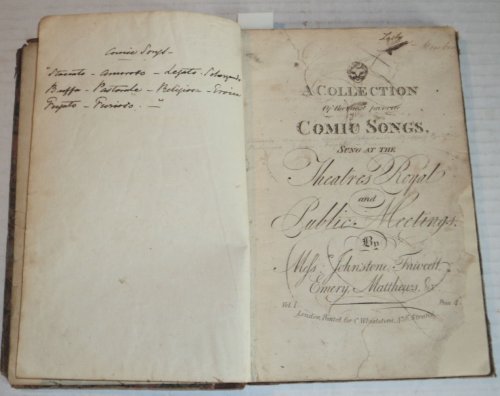 Comic Songs -
Staccato - Amoroso - Legato -
Buffa - Pastorale - Religioso - Eroica
Fugato - Furioso. -
Lady
A COLLECTION
Of the most favorite
COMIC SONGS,
SUNG AT THE
Theatres Royal
and
Public Meetings.
By
Mess. Johnstone, Fawcett,
Emery, Matthews, &c.
Vol. I Price 4
London, Printed for C. Wheatstone, Strand.